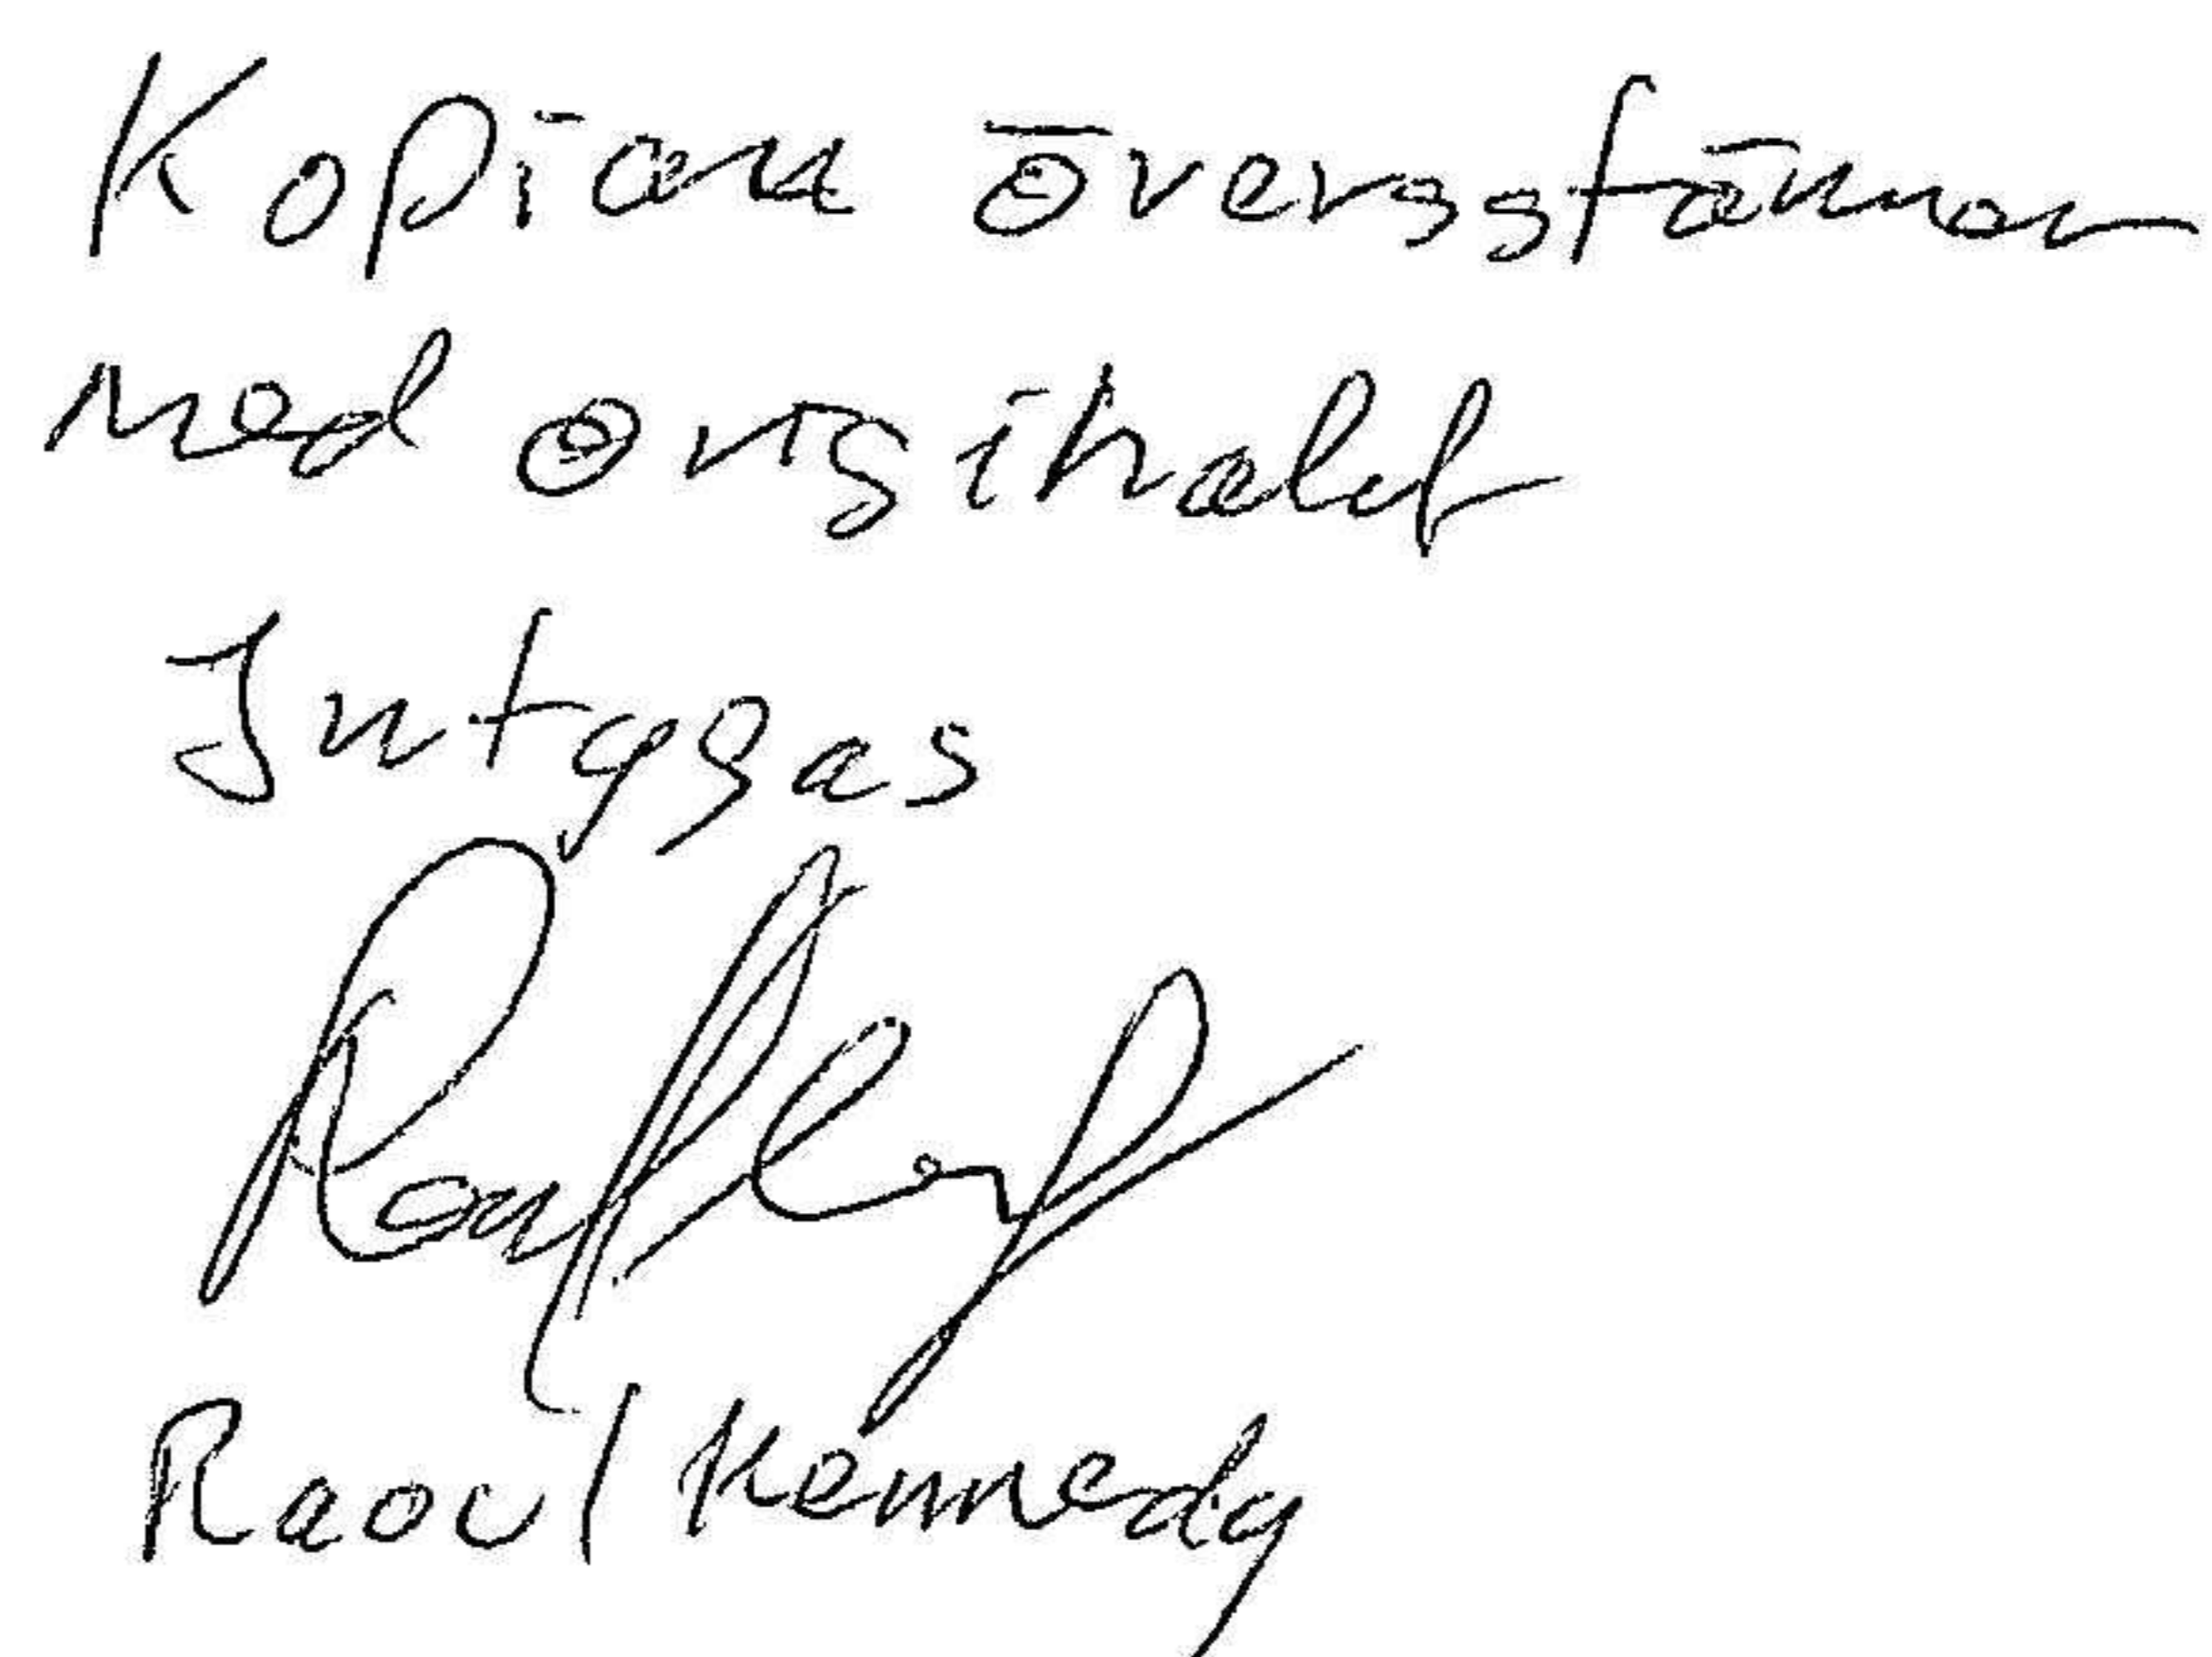 Kopian översstämmer
med orginalet
Intygas
Raoul Kennedy